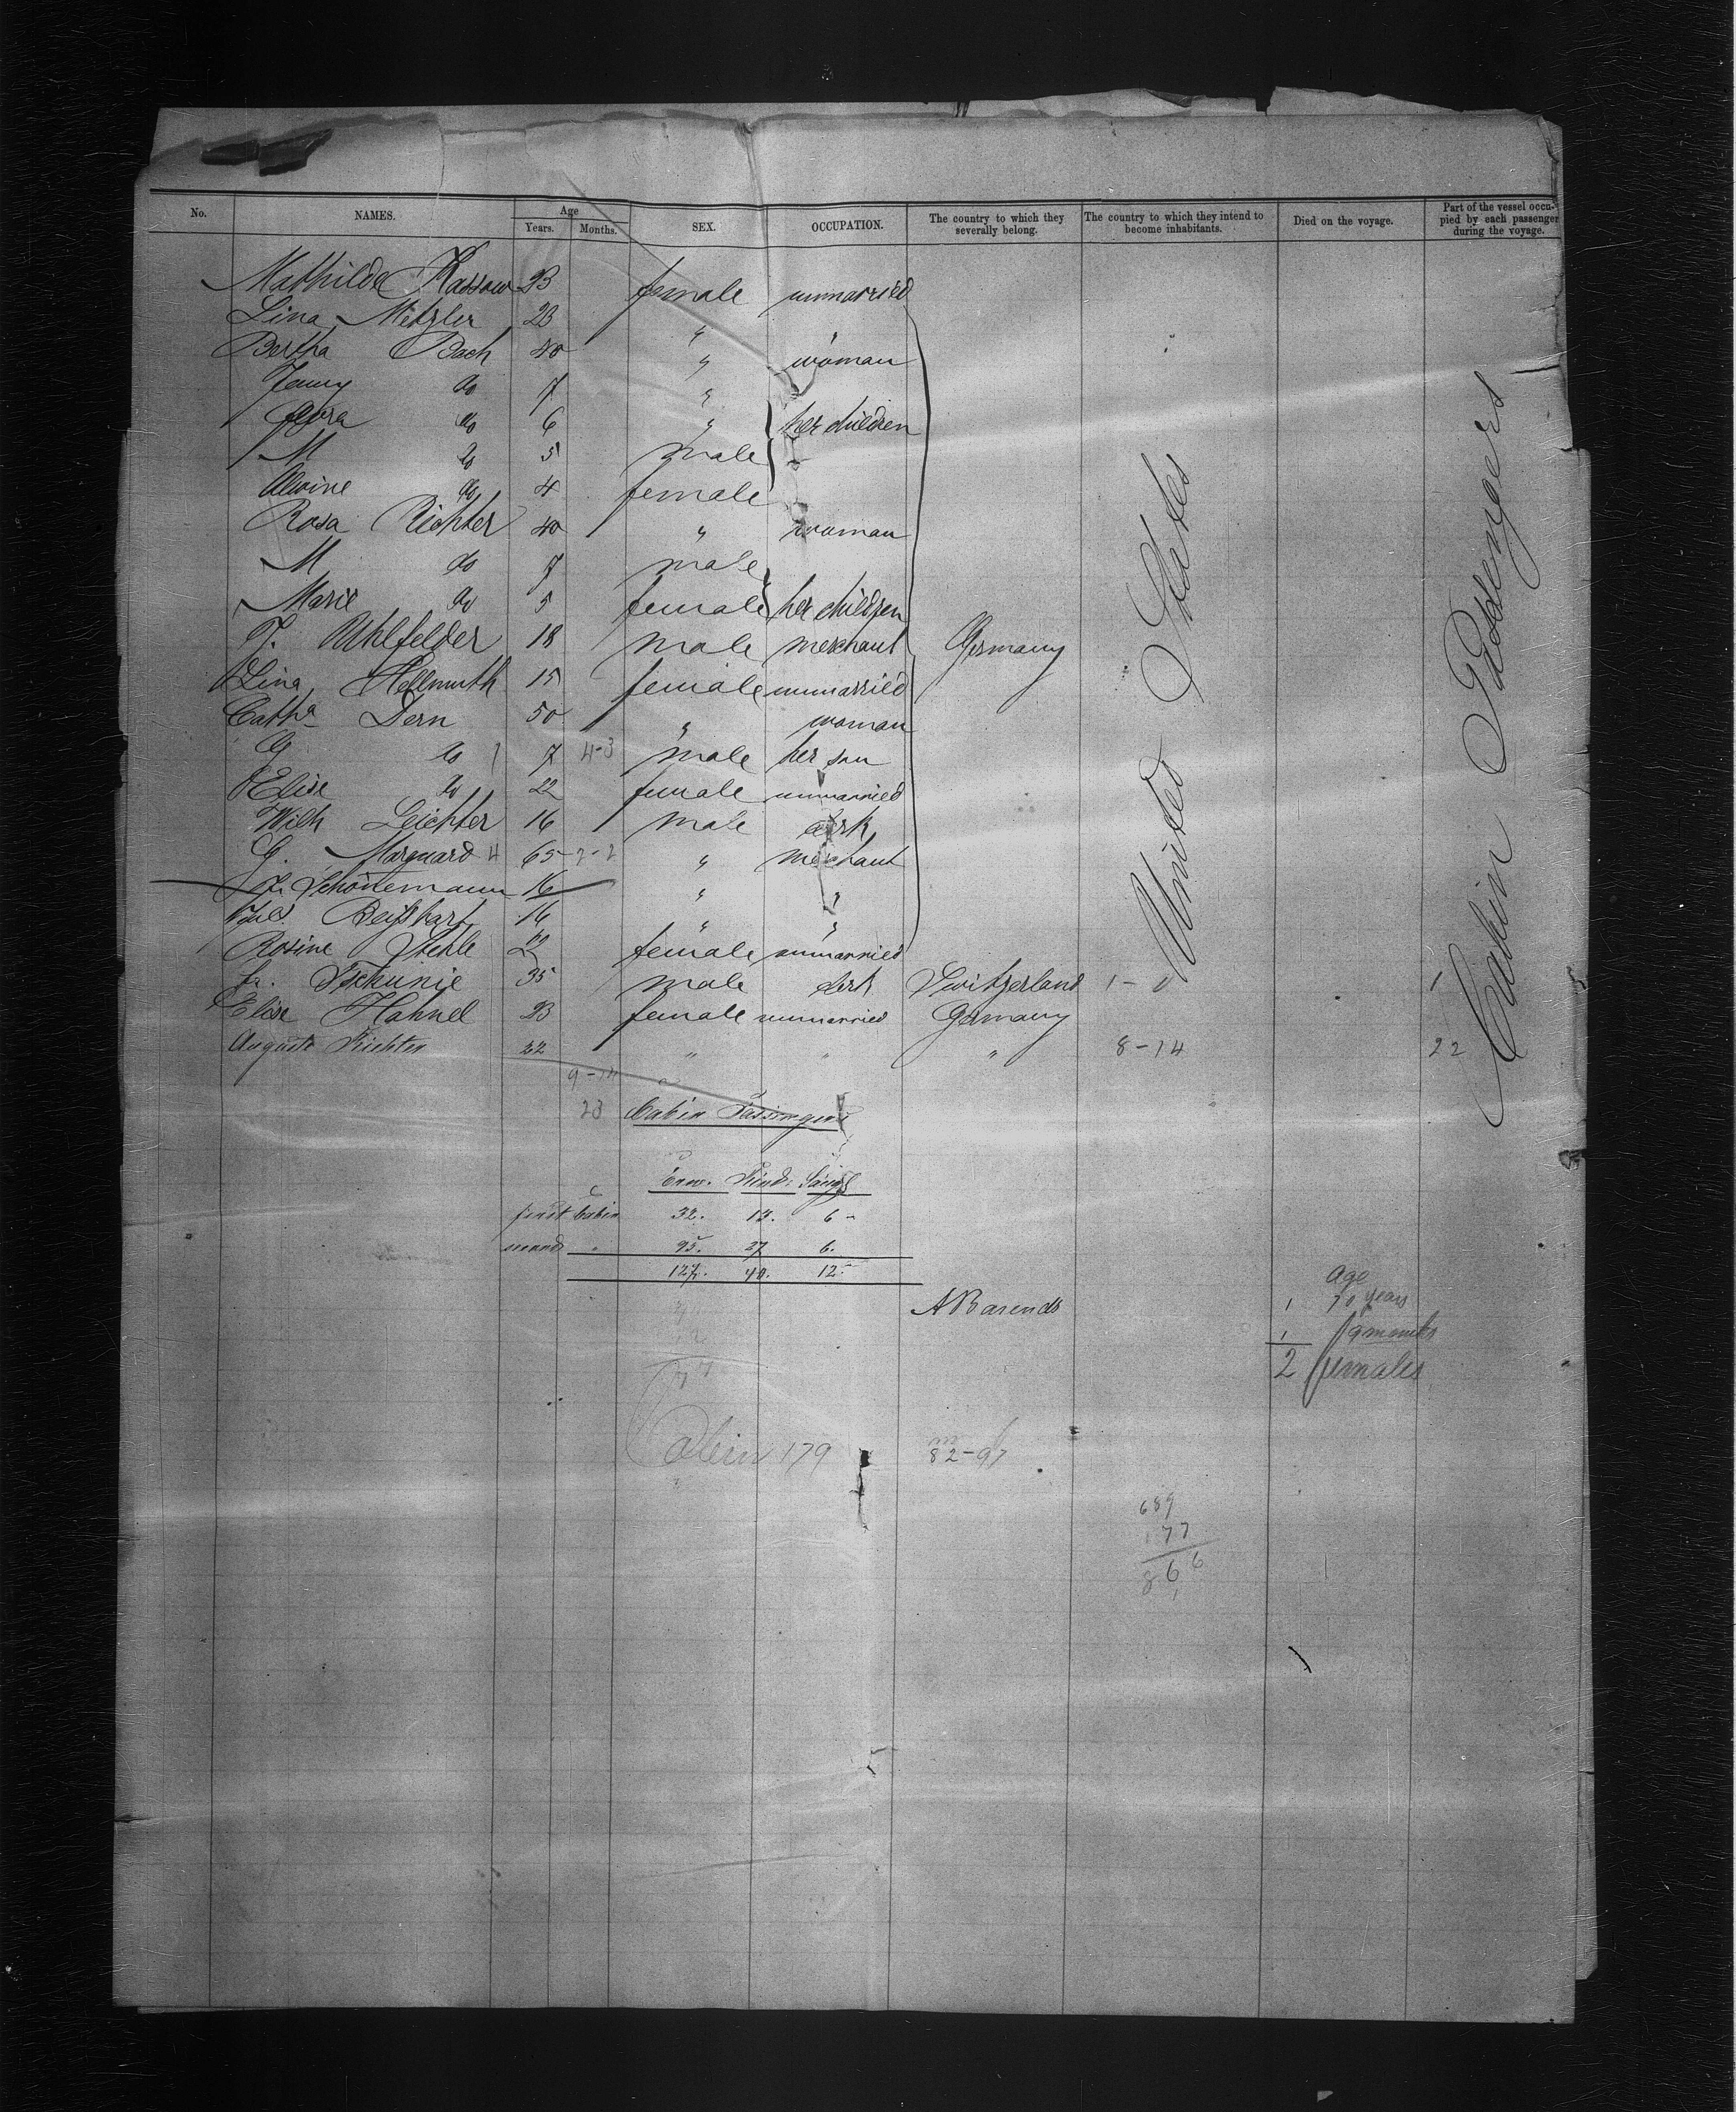 No. NAMES. Age Years. Months. SEX. OCCUPATION. The country to which they severally belong. The country to which they intend to become inhabitants. Died on the voyage. Part of the vessel occupied by each passenger during the voyage.
Mathilde Kassow 23 female unmarried
Lina Metzler 23 " "
Bertha Bach 40 " woman
Jenny do 7 "
Flora do 6 " her children
M do 5 male
Alwine do 4 female
Rosa Richter 40 " woman
M do 7 male
Marie do 5 female her children
T. Uhlfelder 18 male merchant Germany
Lina Hellmuth 15 female unmarried
Cath^a Dern 50 " woman
G do 7 4-3 male her son
Elise do 22 female unmarried
Wilh Leichter 16 male clerk
G. Marquard 4 65 2-2 " merchant
Schönemann 16 " "
Beißbart 16 " "
Rosine Stehle 22 female unmarried
Fr. Tschunie 35 male clerk Switzerland 1-0 1
Elise Hahnel 23 female unmarried Germany
Auguste Richter 22 " " " 8-14 22
United States
Cabin Passengers
9-14
23 Cabin Passengers
Erw. Kind. Säugl
first Cabin 32. 13. 6-
second " 95. 27 6.
127. 40. 12.
ABarends
age
1 70 years
1 9 months
2 females
77
Cabin 179 m 82-97
689
177
866